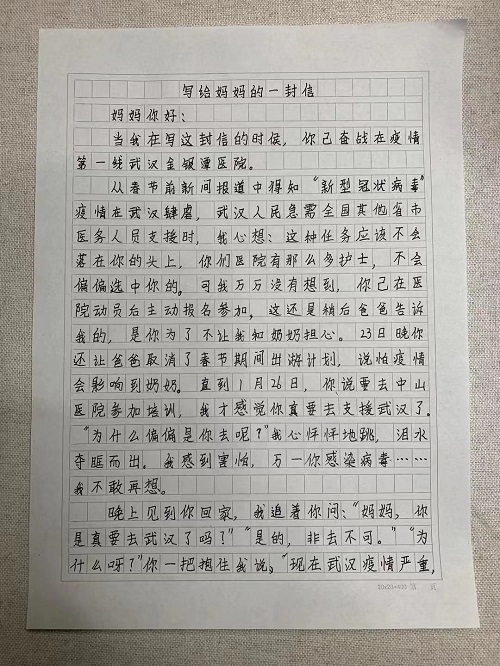 写给妈妈的一封信
妈妈你好：
当我在写这封信的时候，你已奋战在疫情
第一线武汉金银潭医院。
从春节前新闻报道中得知“新型冠状病毒”
疫情在武汉肆虐，武汉人民急需全国其他省市
医务人员支援时，我心想：这种任务应该不会
落在你的头上，你们医院有那么多护士，不会
偏偏选中你的。可我万万没有想到，你已在医
院动员后主动报名参加，这还是稍后爸爸告诉
我的，是你为了不让我和奶奶担心。23日晚你
还让爸爸取消了春节期间出游计划，说怕疫情
会影响到奶奶。直到1月26日，你说要去中山
医院参加培训，我才感觉你真要去支援武汉了。
“为什么偏偏是你去呢？”我心怦怦地跳，泪水
夺眶而出。我感到害怕，万一你感染病毒……
我不敢再想。
晚上见到你回家，我追着你问：“妈妈，你
是真要去武汉了吗？”“是的，非去不可。”“为
什么呀？”你一把抱住我说，“现在武汉疫情严重，
20×20=400 第 页